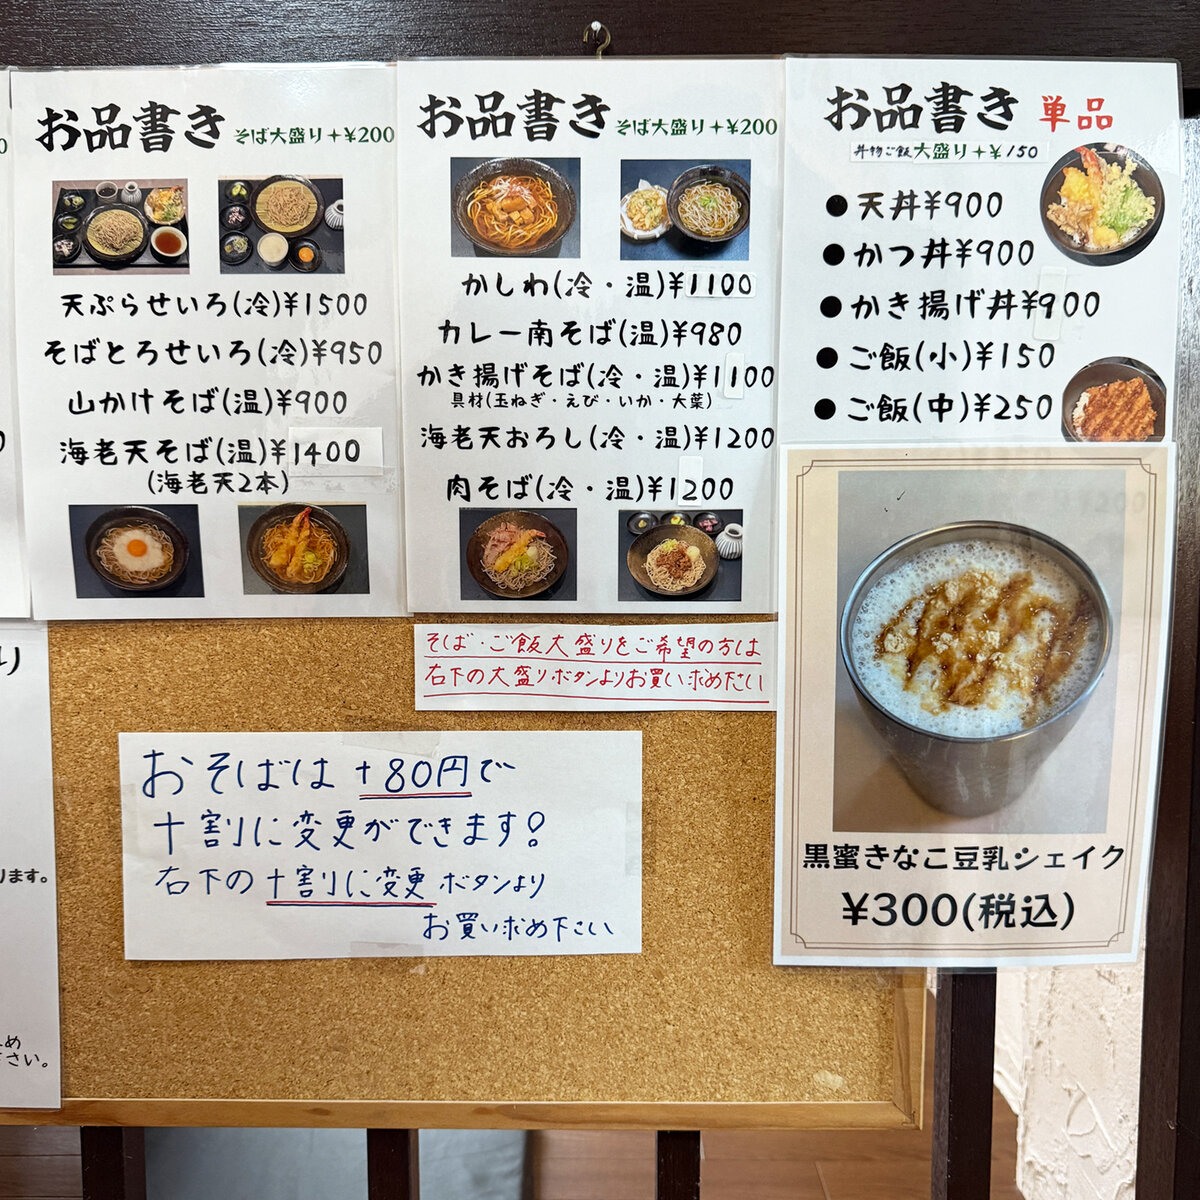 お品書き そば大盛り+¥200
天ぷらせいろ(冷)¥1500
そばとろせいろ(冷)¥950
山かけそば(温)¥900
海老天そば(温)¥1400
(海老天2本)
お品書き そば大盛り+¥200
かしわ(冷・温)¥1100
カレー南そば(温)¥980
かき揚げそば(冷・温)¥1100
具材(玉ねぎ・えび・いか・大葉)
海老天おろし(冷・温)¥1200
肉そば(冷・温)¥1200
お品書き 単品
丼物ご飯大盛り+¥150
●天丼¥900
●かつ丼¥900
●かき揚げ丼¥900
●ご飯(小)¥150
●ご飯(中)¥250
そば・ご飯大盛りをご希望の方は
右下の大盛りボタンよりお買い求め下さい
おそばは +80円で
十割に変更ができます!
右下の十割に変更ボタンより
お買い求め下さい
黒蜜きなこ豆乳シェイク
¥300(税込)
ります。
め
さい。